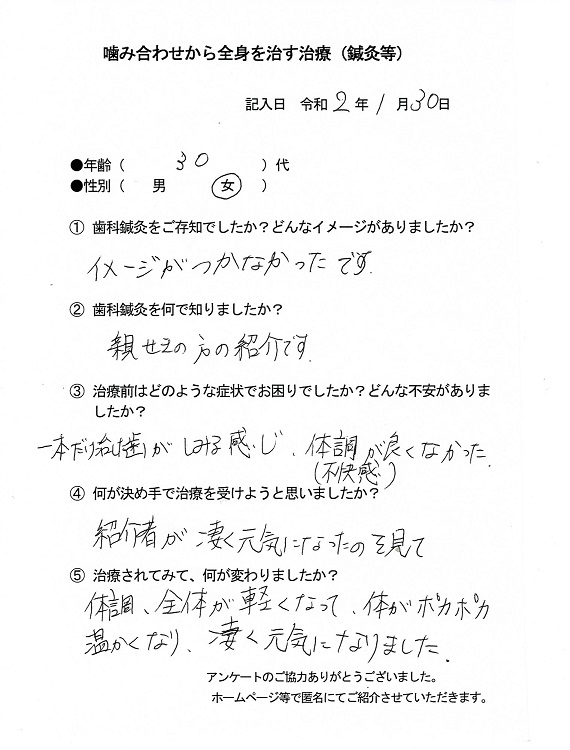 噛み合わせから全身を治す治療（鍼灸等）
記入日 令和 2 年 1 月 30 日
●年齢（ 30 ）代
●性別（ 男 女 ）
① 歯科鍼灸をご存知でしたか？どんなイメージがありましたか？
イメージがつかなかったです.
② 歯科鍼灸を何で知りましたか？
親せきの方の紹介です.
③ 治療前はどのような症状でお困りでしたか？どんな不安がありま
したか？
一本だけ 歯がしみる感じ、体調が良くなかった.
(不快感)
④ 何が決め手で治療を受けようと思いましたか？
紹介者が凄く元気になったのを見て
⑤ 治療されてみて、何が変わりましたか？
体調、全体が軽くなって、体がポカポカ
温かくなり、凄く元気になりました.
アンケートのご協力ありがとうございました。
ホームページ等で匿名にてご紹介させていただきます。